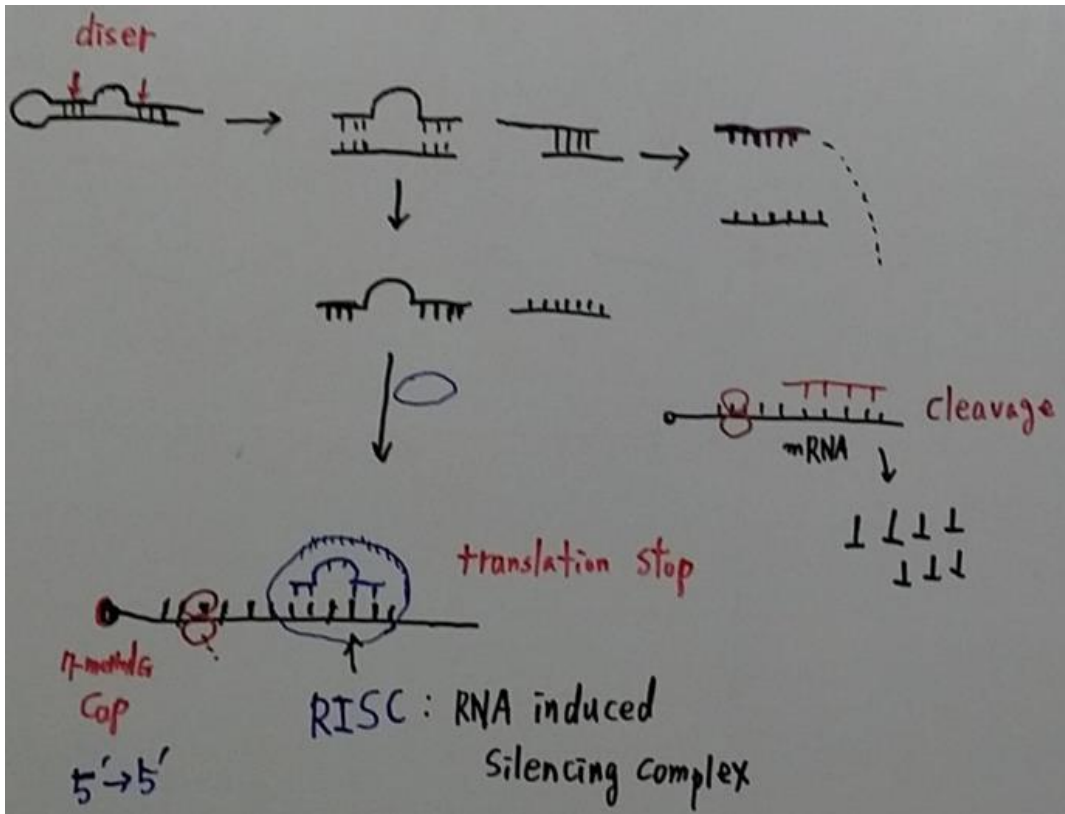 diser
cleavage
mRNA
translation stop
Cap
5'→5'
RISC : RNA induced
Silencing complex